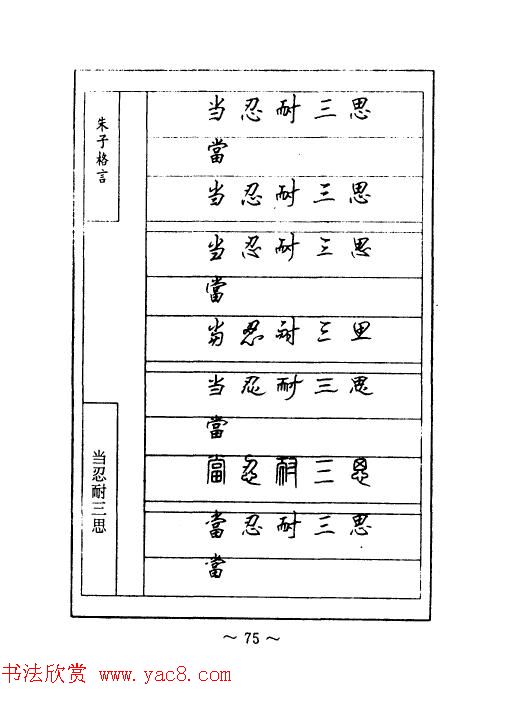 朱子格言
当忍耐三思
当忍耐三思
當
当忍耐三思
当忍耐三思
當
当忍耐三思
当忍耐三思
當
當忍耐三思
當忍耐三思
當
～ 75 ～
书法欣赏 www.yac8.com